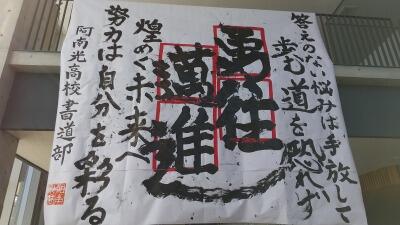 答えのない悩みは手放して
歩む道を恐れず
勇往
邁進
煌めく未来へ
努力は自分を彩る
阿南光高校書道部